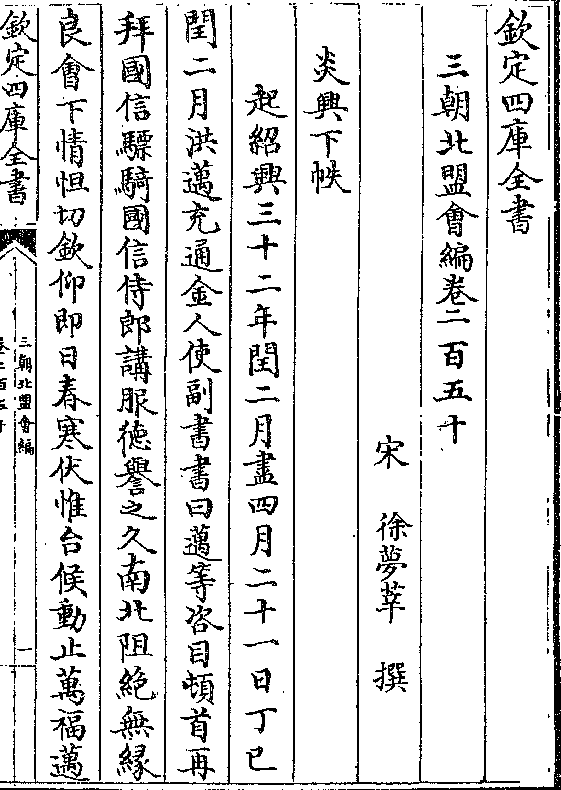 欽定四庫全書
三朝北盟會編卷二百五十
宋　徐夢莘　撰
炎興下帙
起紹興三十二年閏二月盡四月二十一日丁巳
閏二月洪邁充通金人使副書書曰邁等咨目頓首再
拜國信驃騎國信侍郎講服德譽之久南北阻絶無縁
良會下情怛切欽仰即日春寒伏惟台候動止萬福邁
欽定四庫全書
三朝北盟會編
一